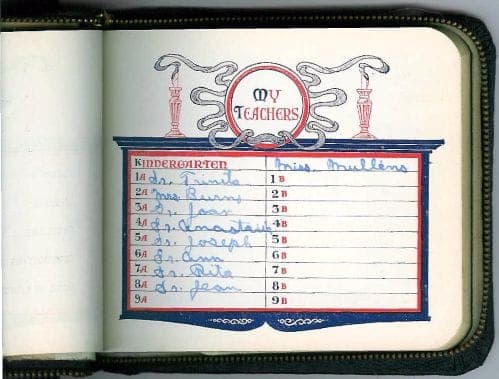 My
Teachers
Kindergarten Miss. Mullens
1A Sr. Trinita 1B
2A Mrs Burns 2B
3A Sr. Joan 3B
4A Sr. Anastasia 4B
5A Sr. Joseph 5B
6A Sr. Ann 6B
7A Sr. Rita 7B
8A Sr. Jean 8B
9A 9B